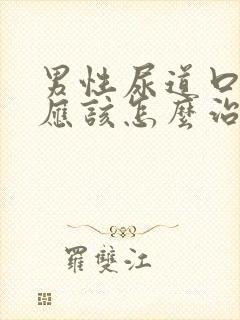 男性尿道口
應該怎麼治
羅雙江